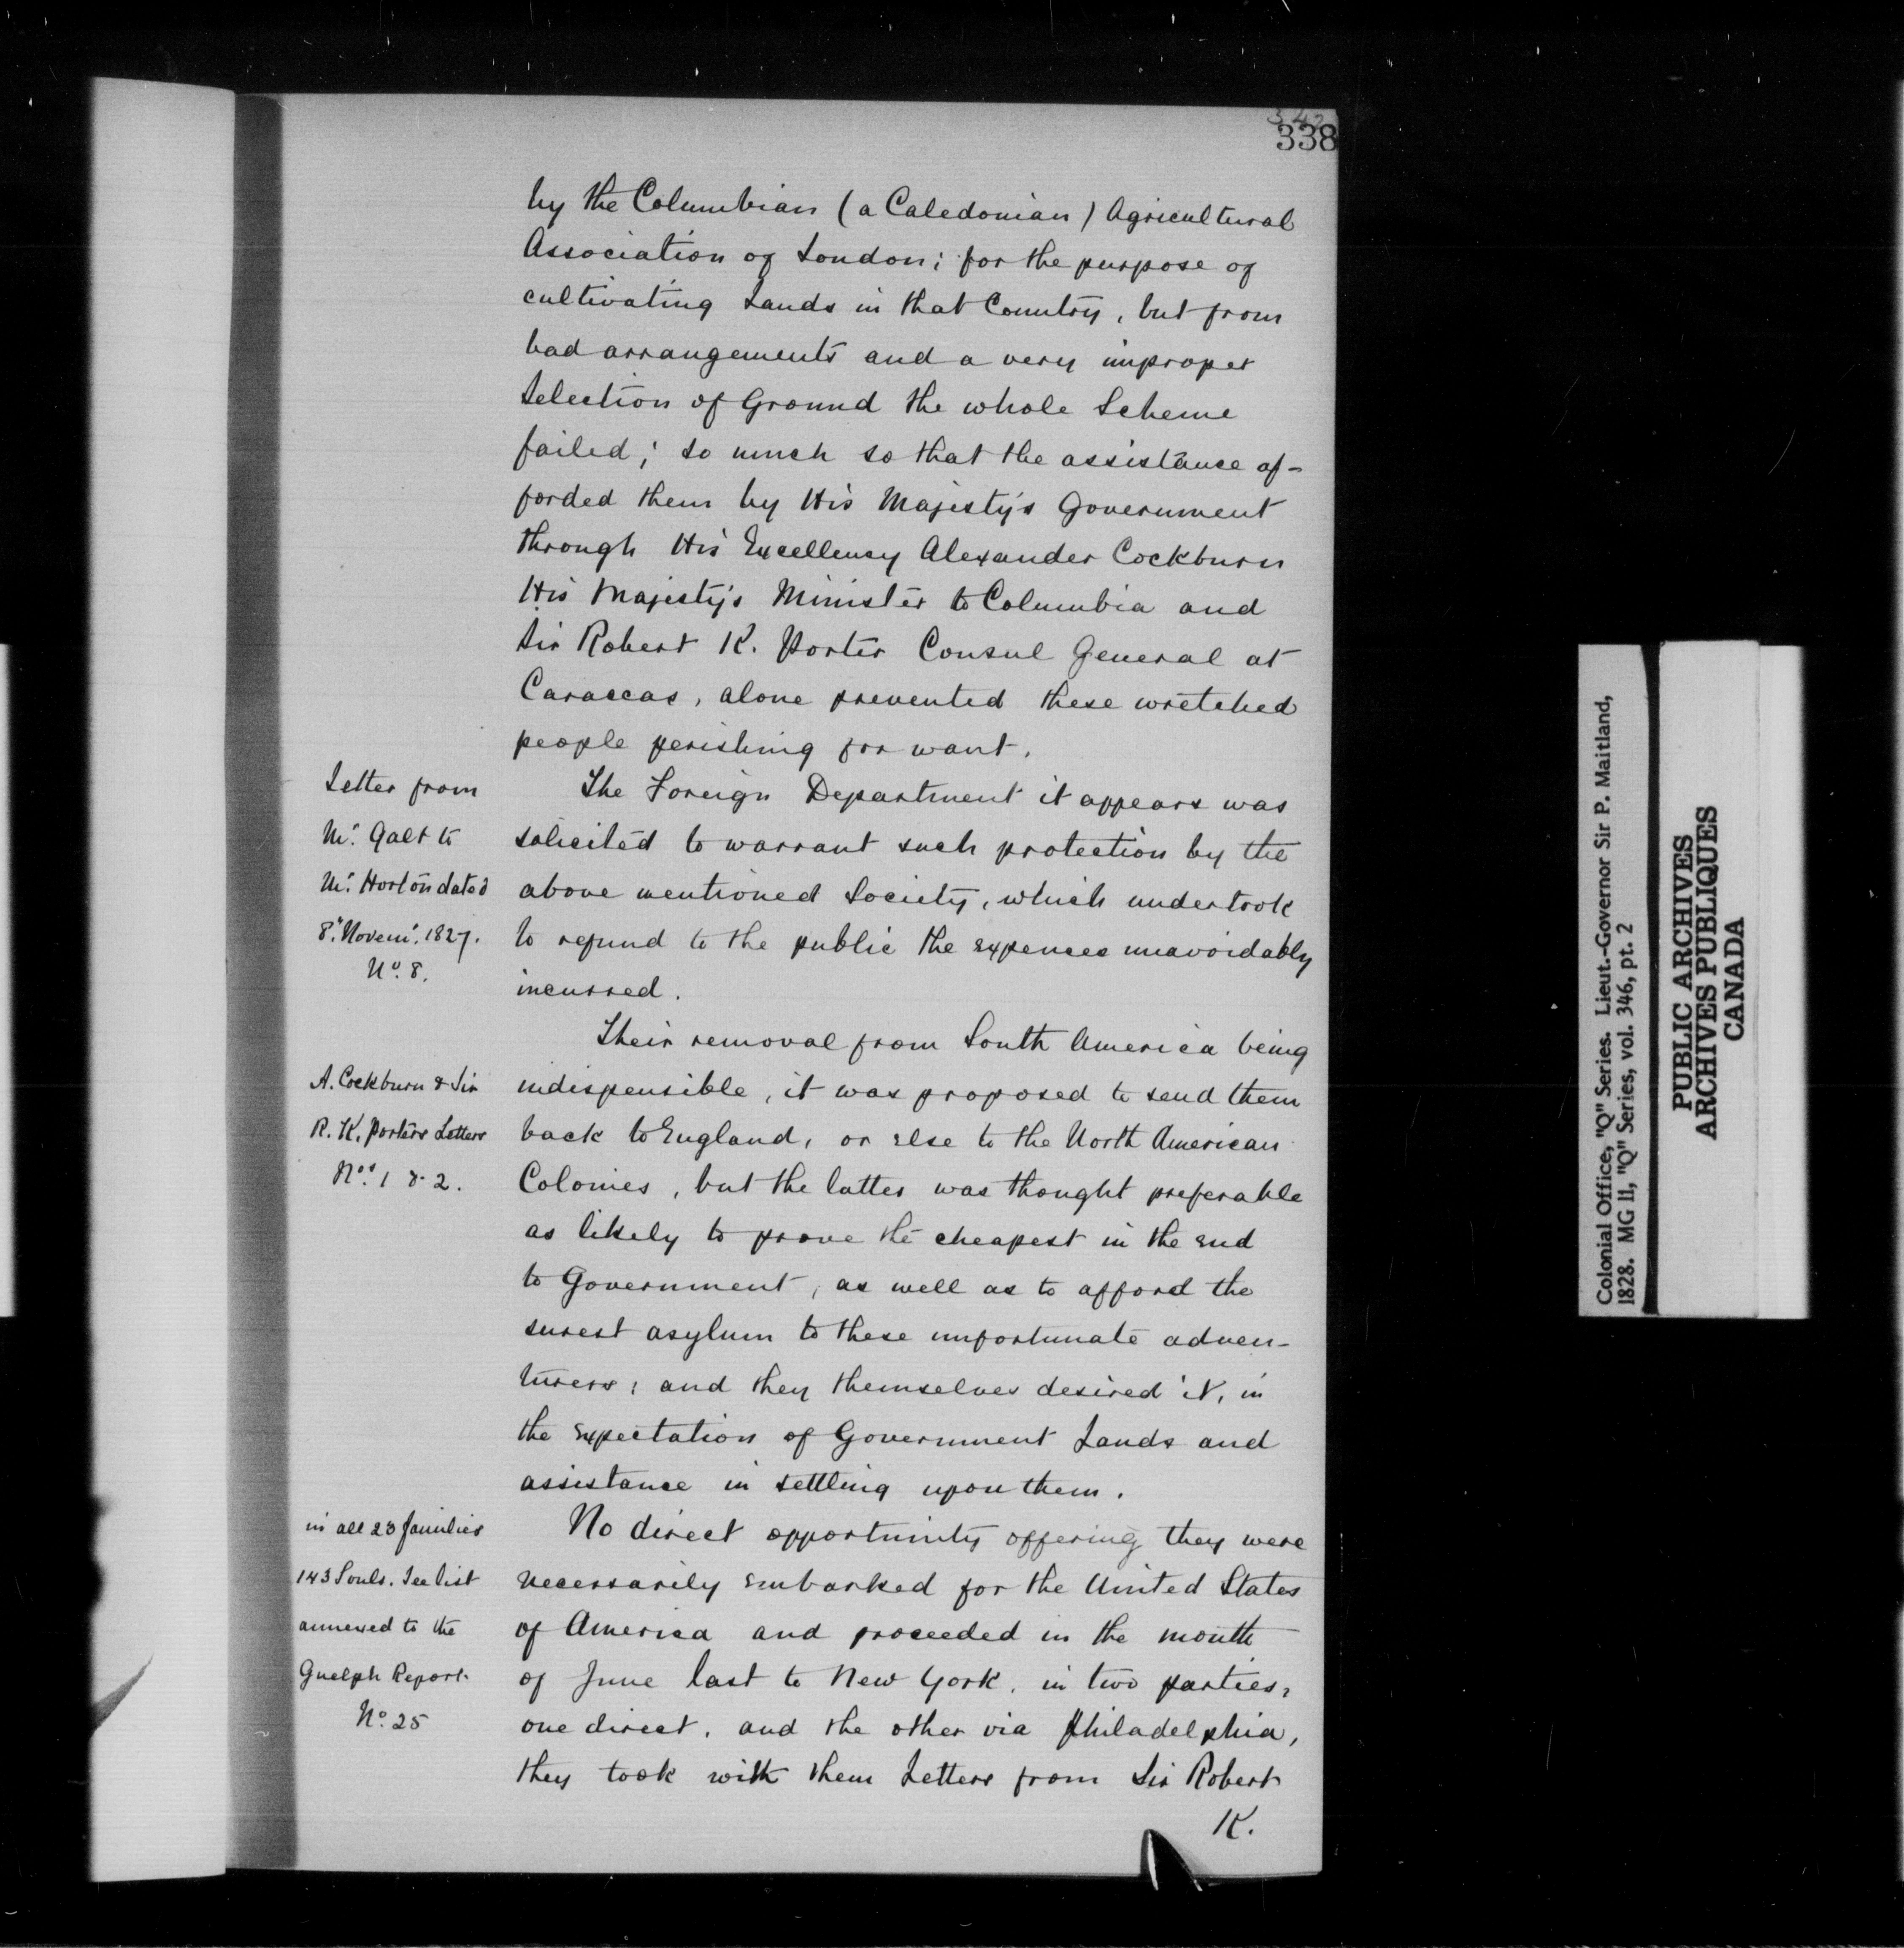 342
338
by the Columbian (a Caledonian) Agricultural
Association of London; for the purpose of
cultivating Lands in that Country, but from
bad arrangements and a very improper
Selection of Ground the whole Scheme
failed; so much so that the assistance af-
forded them by His Majesty's Government
through His Excellency Alexander Cockburn
His Majesty's Minister to Columbia and
Sir Robert K. Porter Consul General at
Caraccas, alone prevented these wretched
people perishing for want.
Letter from
Mr. Galt to
Mr. Horton dated
8" Novem'. 1827.
No. 8.
The Foreign Department it appears was
solicited to warrant such protection by the
above mentioned Society, which undertook
to refund to the public the expences unavoidably
incurred.
A. Cockburn & Sir
R. K. Porters Letters
Nos. 1 & 2.
Their removal from South America being
indispensible, it was proposed to send them
back to England, or else to the North American
Colonies, but the latter was thought preferable
as likely to prove the cheapest in the end
to Government, as well as to afford the
surest asylum to these unfortunate adven-
turers; and they themselves desired it, in
the expectation of Government Lands and
assistance in settling upon them.
in all 23 families
143 Souls. See list
annexed to the
Guelph Report
No. 25
No direct opportunity offering they were
necessarily embarked for the United States
of America and proceeded in the month
of June last to New York, in two parties,
one direct, and the other via Philadelphia,
they took with them Letters from Sir Robert
K.
Colonial Office, "Q" Series. Lieut.-Governor Sir P. Maitland,
1828. MG 11, "Q" Series, vol. 346, pt. 2
PUBLIC ARCHIVES
ARCHIVES PUBLIQUES
CANADA